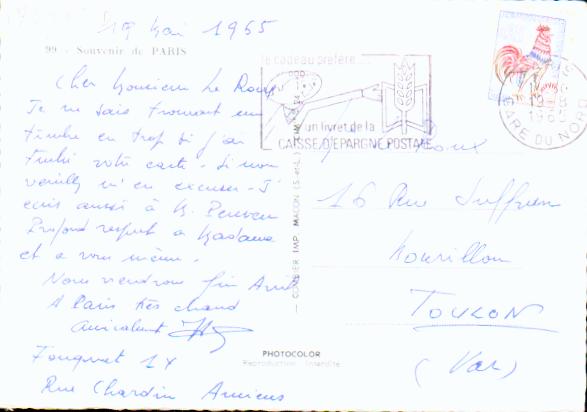 19 Mai 1965
99 - Souvenir de PARIS
Cher Monsieur Le Roux
Je ne sais
timbre en trop si j'ai
timbré votre carte - Sinon
veuillez m'en excuser - J'
écris aussi à M.
Profond respect à Madame
et à vous même.
Nous viendrons fin Août
A Paris très chaud
Amicalement
Fouquet 14
Rue Chardin Amiens
le cadeau préféré...
un livret de la
CAISSE D'EPARGNE POSTALE
PARIS
1965
GARE DU NORD
Roux
16 Rue Suffren
Mourillon
TOULON
(Var)
COMBIER IMP. MACON (S.-et-L.)
PHOTOCOLOR
Reproduction Interdite